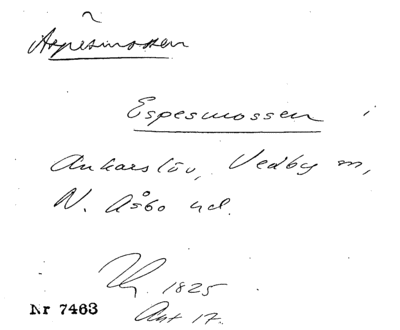 Äspesmossen
Espesmossen i
Ankarslöv, Vedby sn,
N. Åsbo hd.
1825
Akt 17.
Nr 7463